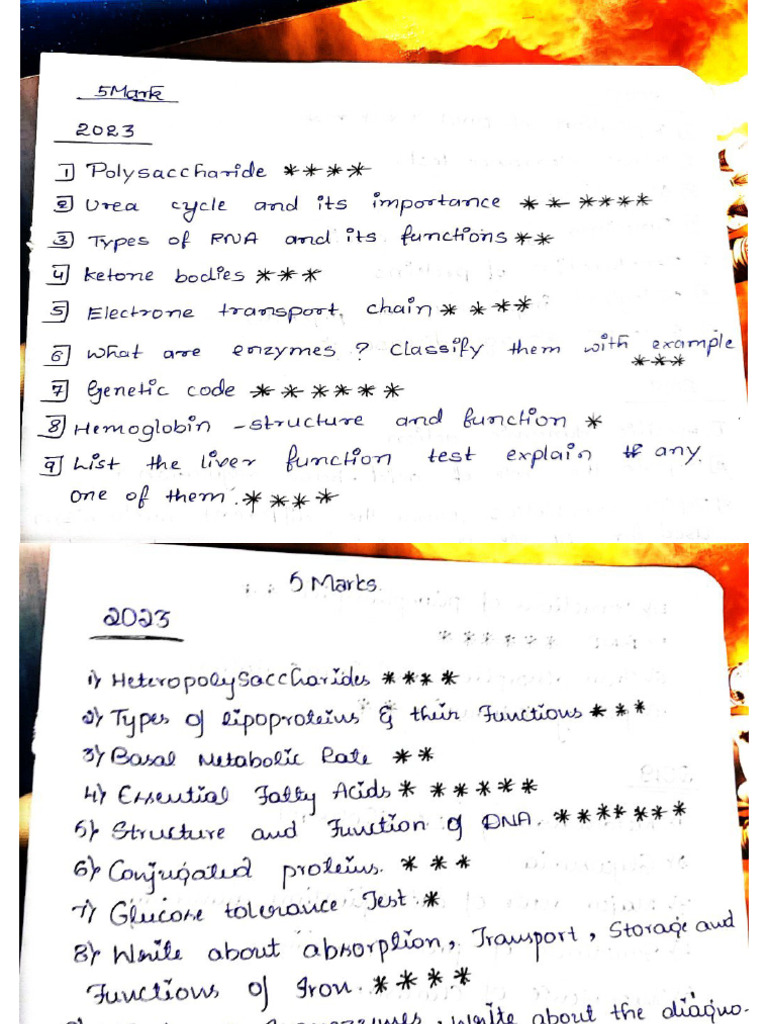 5Mark
2023
1 Polysaccharide ****
2 Urea cycle and its importance ** ****
3 Types of RNA and its functions **
4 Ketone bodies ***
5 Electrone transport chain ****
6 What are enzymes ? Classify them with example
***
7 Genetic code ******
8 Hemoglobin - structure and function *
9 List the liver function test explain any
one of them. ****
5 Marks.
2023
1) Heteropolysaccharides ****
2) Types of lipoproteins & their Functions ***
3) Basal Metabolic Rate **
4) Essential Fatty Acids * *****
5) Structure and Function of DNA. *******
6) Conjugated proteins. ***
7) Glucose tolerance Test *
8) Write about absorption, Transport, Storage and
Functions of Iron. ****
Write about the diagno-